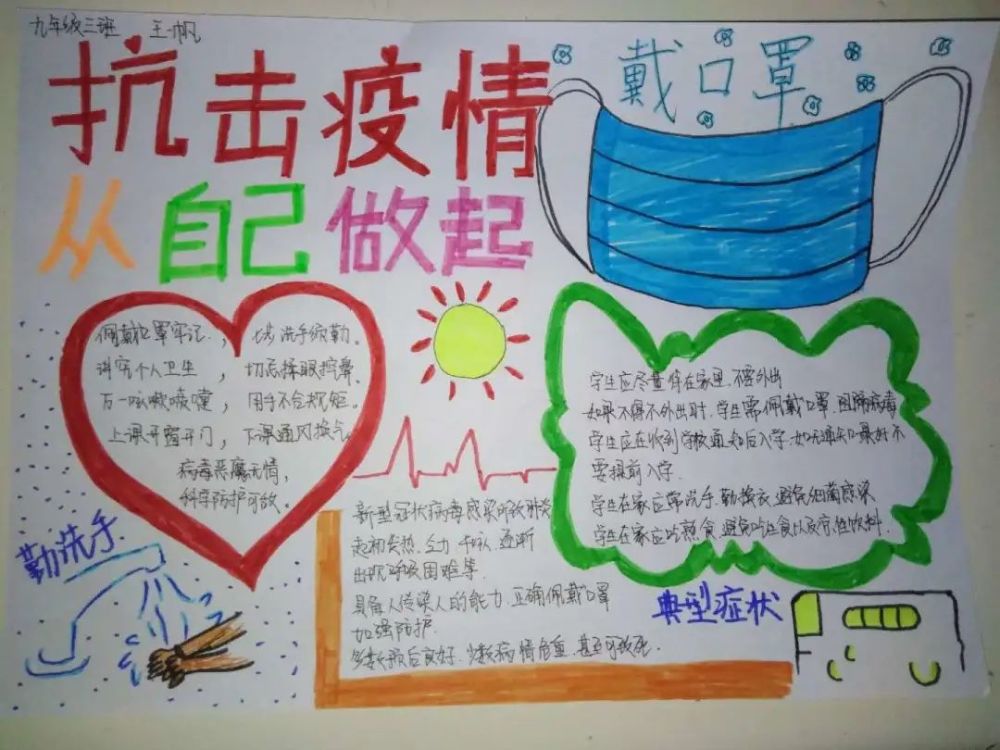 九年级三班 王帆
抗击疫情
从自己做起
戴口罩
佩戴口罩牢记, 洗手须勤。
讲究个人卫生, 切忌揉眼挖鼻。
万一咳嗽喷嚏, 用手不合规矩。
上课开窗开门, 下课通风换气。
病毒恶魔无情,
科学防护可敌。
学生应尽量待在家里,不要外出
如果不得不外出时,学生需佩戴口罩,阻隔病毒
学生应在收到学校通知后入学,如无通知最好不
要提前入学
学生在家应常洗手,勤换衣,避免细菌感染
学生在家应吃熟食,避免吃生食以及刺激性饮料
新型冠状病毒感染所致肺炎
起初发热、乏力、干咳、逐渐
出现呼吸困难等
具备人传染人的能力,正确佩戴口罩
加强防护
多数预后良好,少数病情危重,甚至可致死.
勤洗手
典型症状